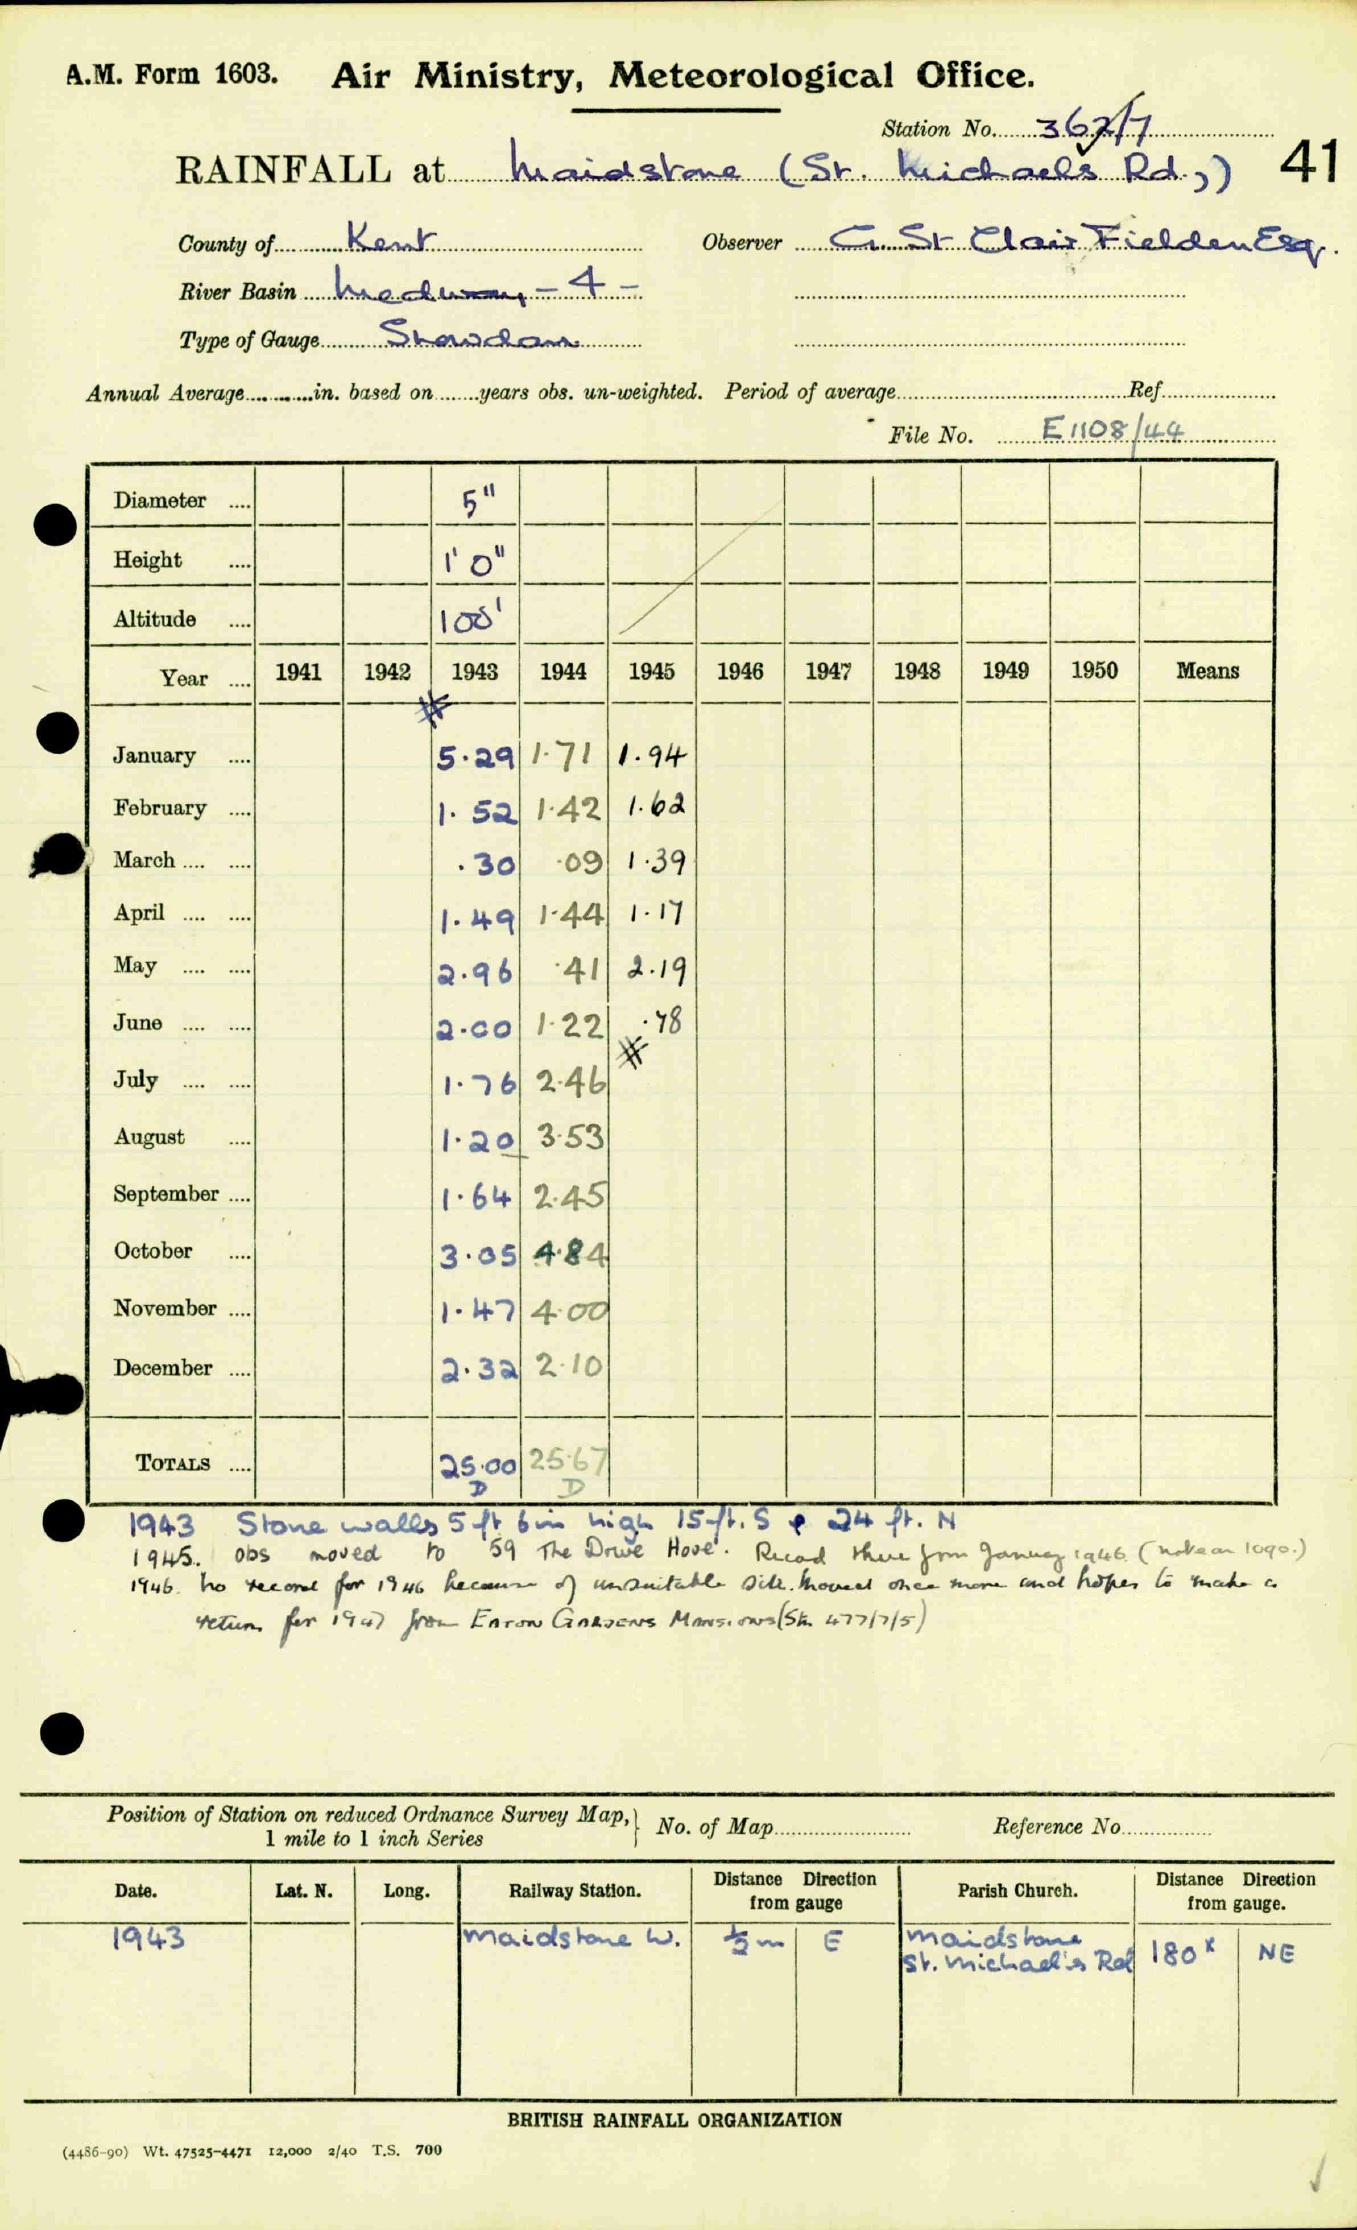 A.M. Form 1603. Air Ministry, Meteorological Office.
Station No. 362/7
RAINFALL at Maidstone (St. Michael's Rd.,) 41
County of Kent Observer G. St Clair Fielden Esq.
River Basin Medway - 4 -
Type of Gauge Snowdon
Annual Average in. based on years obs. un-weighted. Period of average Ref
File No. E1108/44
Diameter .... 5"
Height .... 1' 0"
Altitude .... 100'
Year .... 1941 1942 1943 1944 1945 1946 1947 1948 1949 1950 Means
January .... 5.29 1.71 1.94
February .... 1.52 1.42 1.62
March .... .... .30 .09 1.39
April .... .... 1.49 1.44 1.17
May .... .... 2.96 .41 2.19
June .... .... 2.00 1.22 .78
July .... .... 1.76 2.46
August .... 1.20 3.53
September .... 1.64 2.45
October .... 3.05 4.84
November .... 1.47 4.00
December .... 2.32 2.10
TOTALS .... 25.00 25.67
D D
1943 Stone walls 5 ft 6 in high 15 ft. S & 24 ft. N
1945. obs moved to 59 The Drive Hove. Record there from January 1946
1946. No record for 1946 because of unsuitable site. Moved once more and hopes to make a
return for 1947 from EATON GARDENS MANSIONS (Stn 477/7/5)
Position of Station on reduced Ordnance Survey Map, 1 mile to 1 inch Series } No. of Map Reference No.
Date. Lat. N. Long. Railway Station. Distance Direction from gauge Parish Church. Distance Direction from gauge.
1943 Maidstone W. ½ m E Maidstone St. Michael's Rd 180ˣ NE
BRITISH RAINFALL ORGANIZATION
(4486-90) Wt. 47525-4471 12,000 2/40 T.S. 700